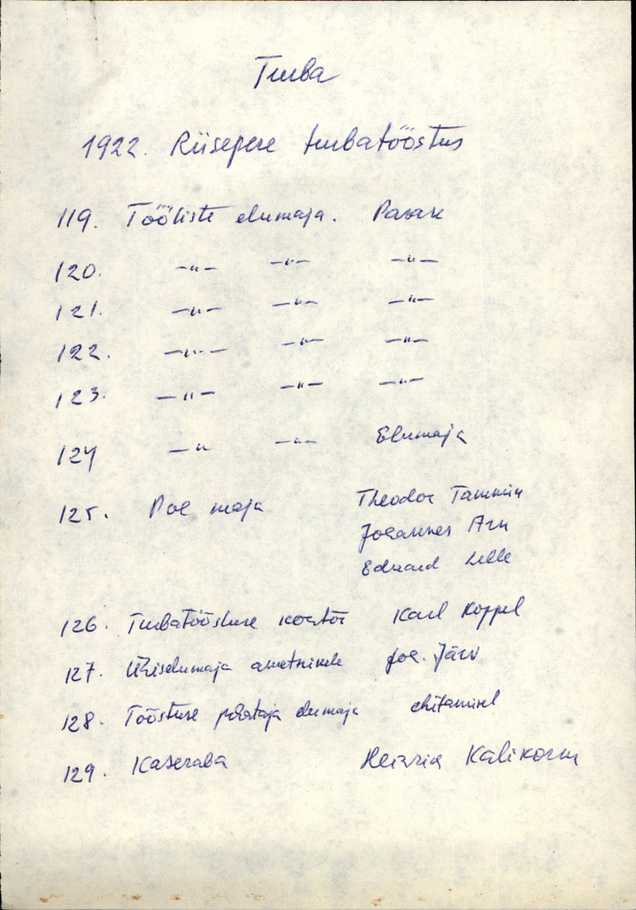 Turba
1922. Riisepere turbatööstus
119. Tööliste elumaja. Parak
120. -"- -"- -"-
121. -"- -"- -"-
122. -"- -"- -"-
123. -"- -"- -"-
124 -"- -"- Elumaja
125. Poe maja Theodor Tammin
Johannes Arn
Eduard Lelle
126. Turbatööstuse kontor Karl Koppel
127. Ühiselumaja ametnikele Joh. Järv
128. Tööstuse juhataja elumaja ehitamisel
129. Kaseraba Heinrich Kalikorm